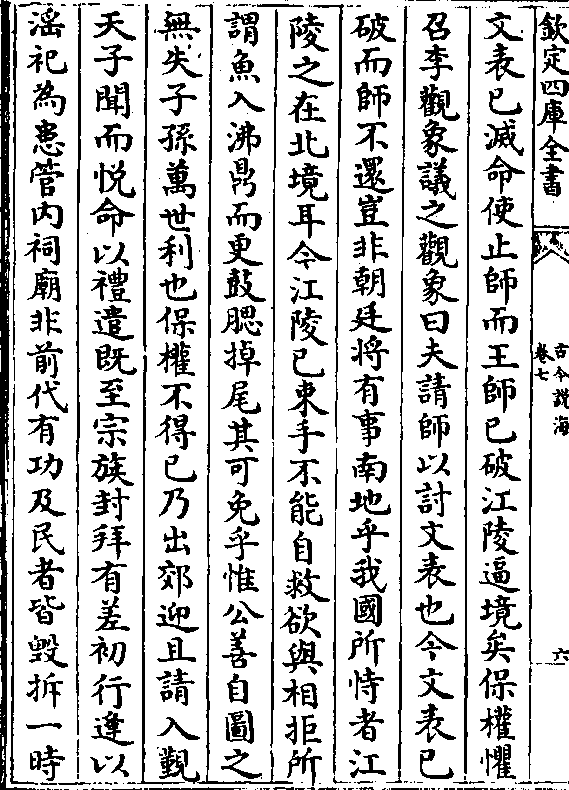 欽定四庫全書
古今說海
卷七
六
文表已滅命使止師而王師已破江陵逼境矣保權懼
召李觀象議之觀象曰夫請師以討文表也今文表已
破而師不還豈非朝廷将有事南地乎我國所恃者江
陵之在北境耳今江陵已束手不能自救欲與相拒所
謂魚入沸鼎而更鼓腮掉尾其可免乎惟公善自圖之
無失子孫萬世利也保權不得已乃出郊迎且請入覲
天子聞而悦命以禮遣既至宗族封拜有差初行逢以
滛祀為患管内祠廟非前代有功及民者皆毁拆一時